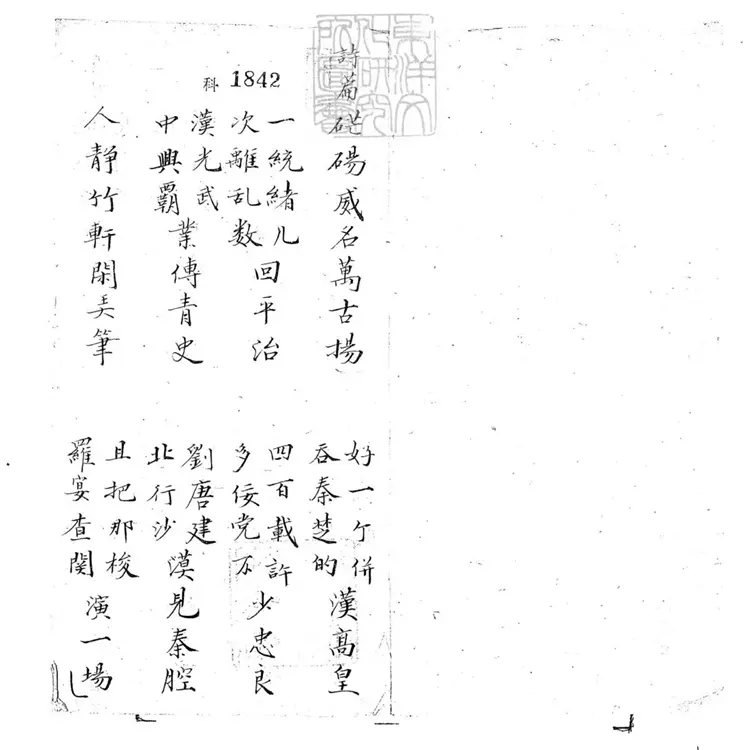 東洋文化研究所圖書
科 1842
詩篇硭碭威名萬古揚
好一个併吞秦楚的漢高皇
一統緒儿次離乱数回平治
四百載許多佞党不少忠良
漢光武中興霸業傳青史
劉唐建北行沙漠見秦腔
人靜竹軒閑弄筆
且把那梭羅宴查関演一場